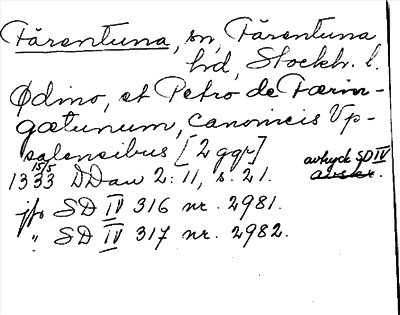 Färentuna, sn, Färentuna
hd, Stockh. l.
Ødino, et Petro de Færin-
gætunum, canonicis Vp-
salensibus [2 ggr]
1333 15/5 DDaw 2:11, s. 21. avtryck SD IV avskr.
jfr SD IV 316 nr. 2981.
" SD IV 317 nr. 2982.